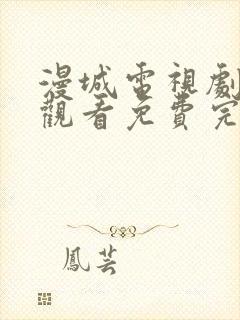 漫城電視劇
觀看免費完
鳳芸